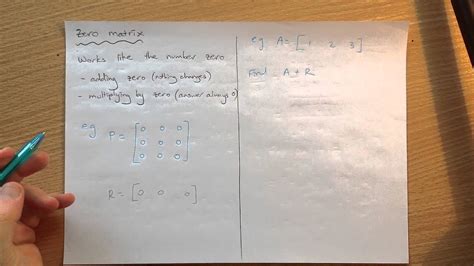 Zero matrix
Works like the number zero
- adding zero (nothing changes)
- multiplying by zero (answer always 0)
eg P = [0 0 0
0 0 0
0 0 0]
R = [0 0 0]
eg A = [1 2 3]
Find A + R